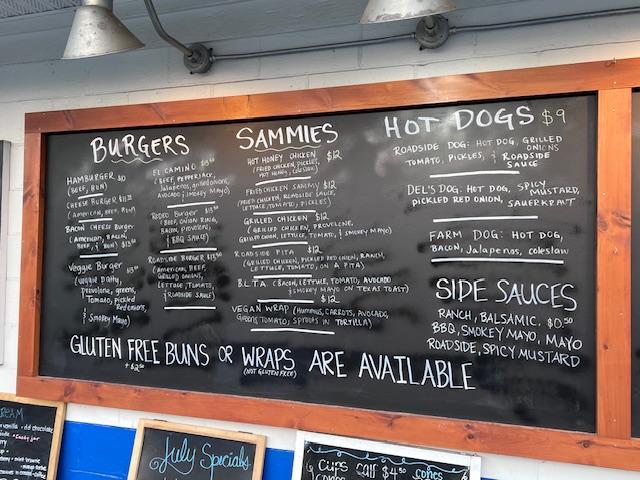 BURGERS
HAMBURGER
(BEEF, BUN)
CHEESE BURGER
(AMERICAN, BEEF, BUN)
BACON CHEESE BURGER
(AMERICAN, BACON,
BEEF, BUN)
Veggie Burger
(Veggie Patty,
Provolone, greens,
Tomato, Pickled
Red onions,
& Smokey Mayo)
EL CAMINO
(BEEF, PEPPERJACK,
Jalapeños, grilled onions,
AVOCADO & SMOKEY MAYO)
Rodeo Burger
(BEEF, ONION RING,
BACON, PROVOLONE,
& BBQ SAUCE)
ROADSIDE BURGER
(AMERICAN, BEEF,
GRILLED ONIONS,
LETTUCE, TOMATO,
& ROADSIDE SAUCE)
SAMMIES
HOT HONEY CHICKEN $12
(FRIED CHICKEN, PICKLES,
HOT HONEY, COLESLAW)
FRIED CHICKEN SAMMY $12
(FRIED CHICKEN, ROADSIDE SAUCE,
LETTUCE, TOMATO, PICKLES)
GRILLED CHICKEN $12
(GRILLED CHICKEN, PROVOLONE,
GRILLED ONION, LETTUCE, TOMATO, & SMOKEY MAYO)
ROADSIDE PITA $12
(GRILLED CHICKEN, PICKLED RED ONION, RANCH,
LETTUCE, TOMATO, ON A PITA)
B.L.T.A. (BACON, LETTUCE, TOMATO, AVOCADO
& SMOKEY MAYO ON TEXAS TOAST)
$12
VEGAN WRAP (HUMMUS, CARROTS, AVOCADO,
GREENS, TOMATO, SPROUTS IN TORTILLA)
HOT DOGS $9
ROADSIDE DOG: HOT DOG, GRILLED
ONIONS
TOMATO, PICKLES, & ROADSIDE
SAUCE
DEL'S DOG: HOT DOG, SPICY
MUSTARD,
PICKLED RED ONION, SAUERKRAUT
FARM DOG: HOT DOG,
BACON, Jalapenos, coleslaw
SIDE SAUCES
RANCH, BALSAMIC, $0.50
BBQ, SMOKEY MAYO, MAYO
ROADSIDE, SPICY MUSTARD
GLUTEN FREE BUNS OR WRAPS ARE AVAILABLE
(NOT GLUTEN FREE)
July Specials
Cups Call $4.50 Cones